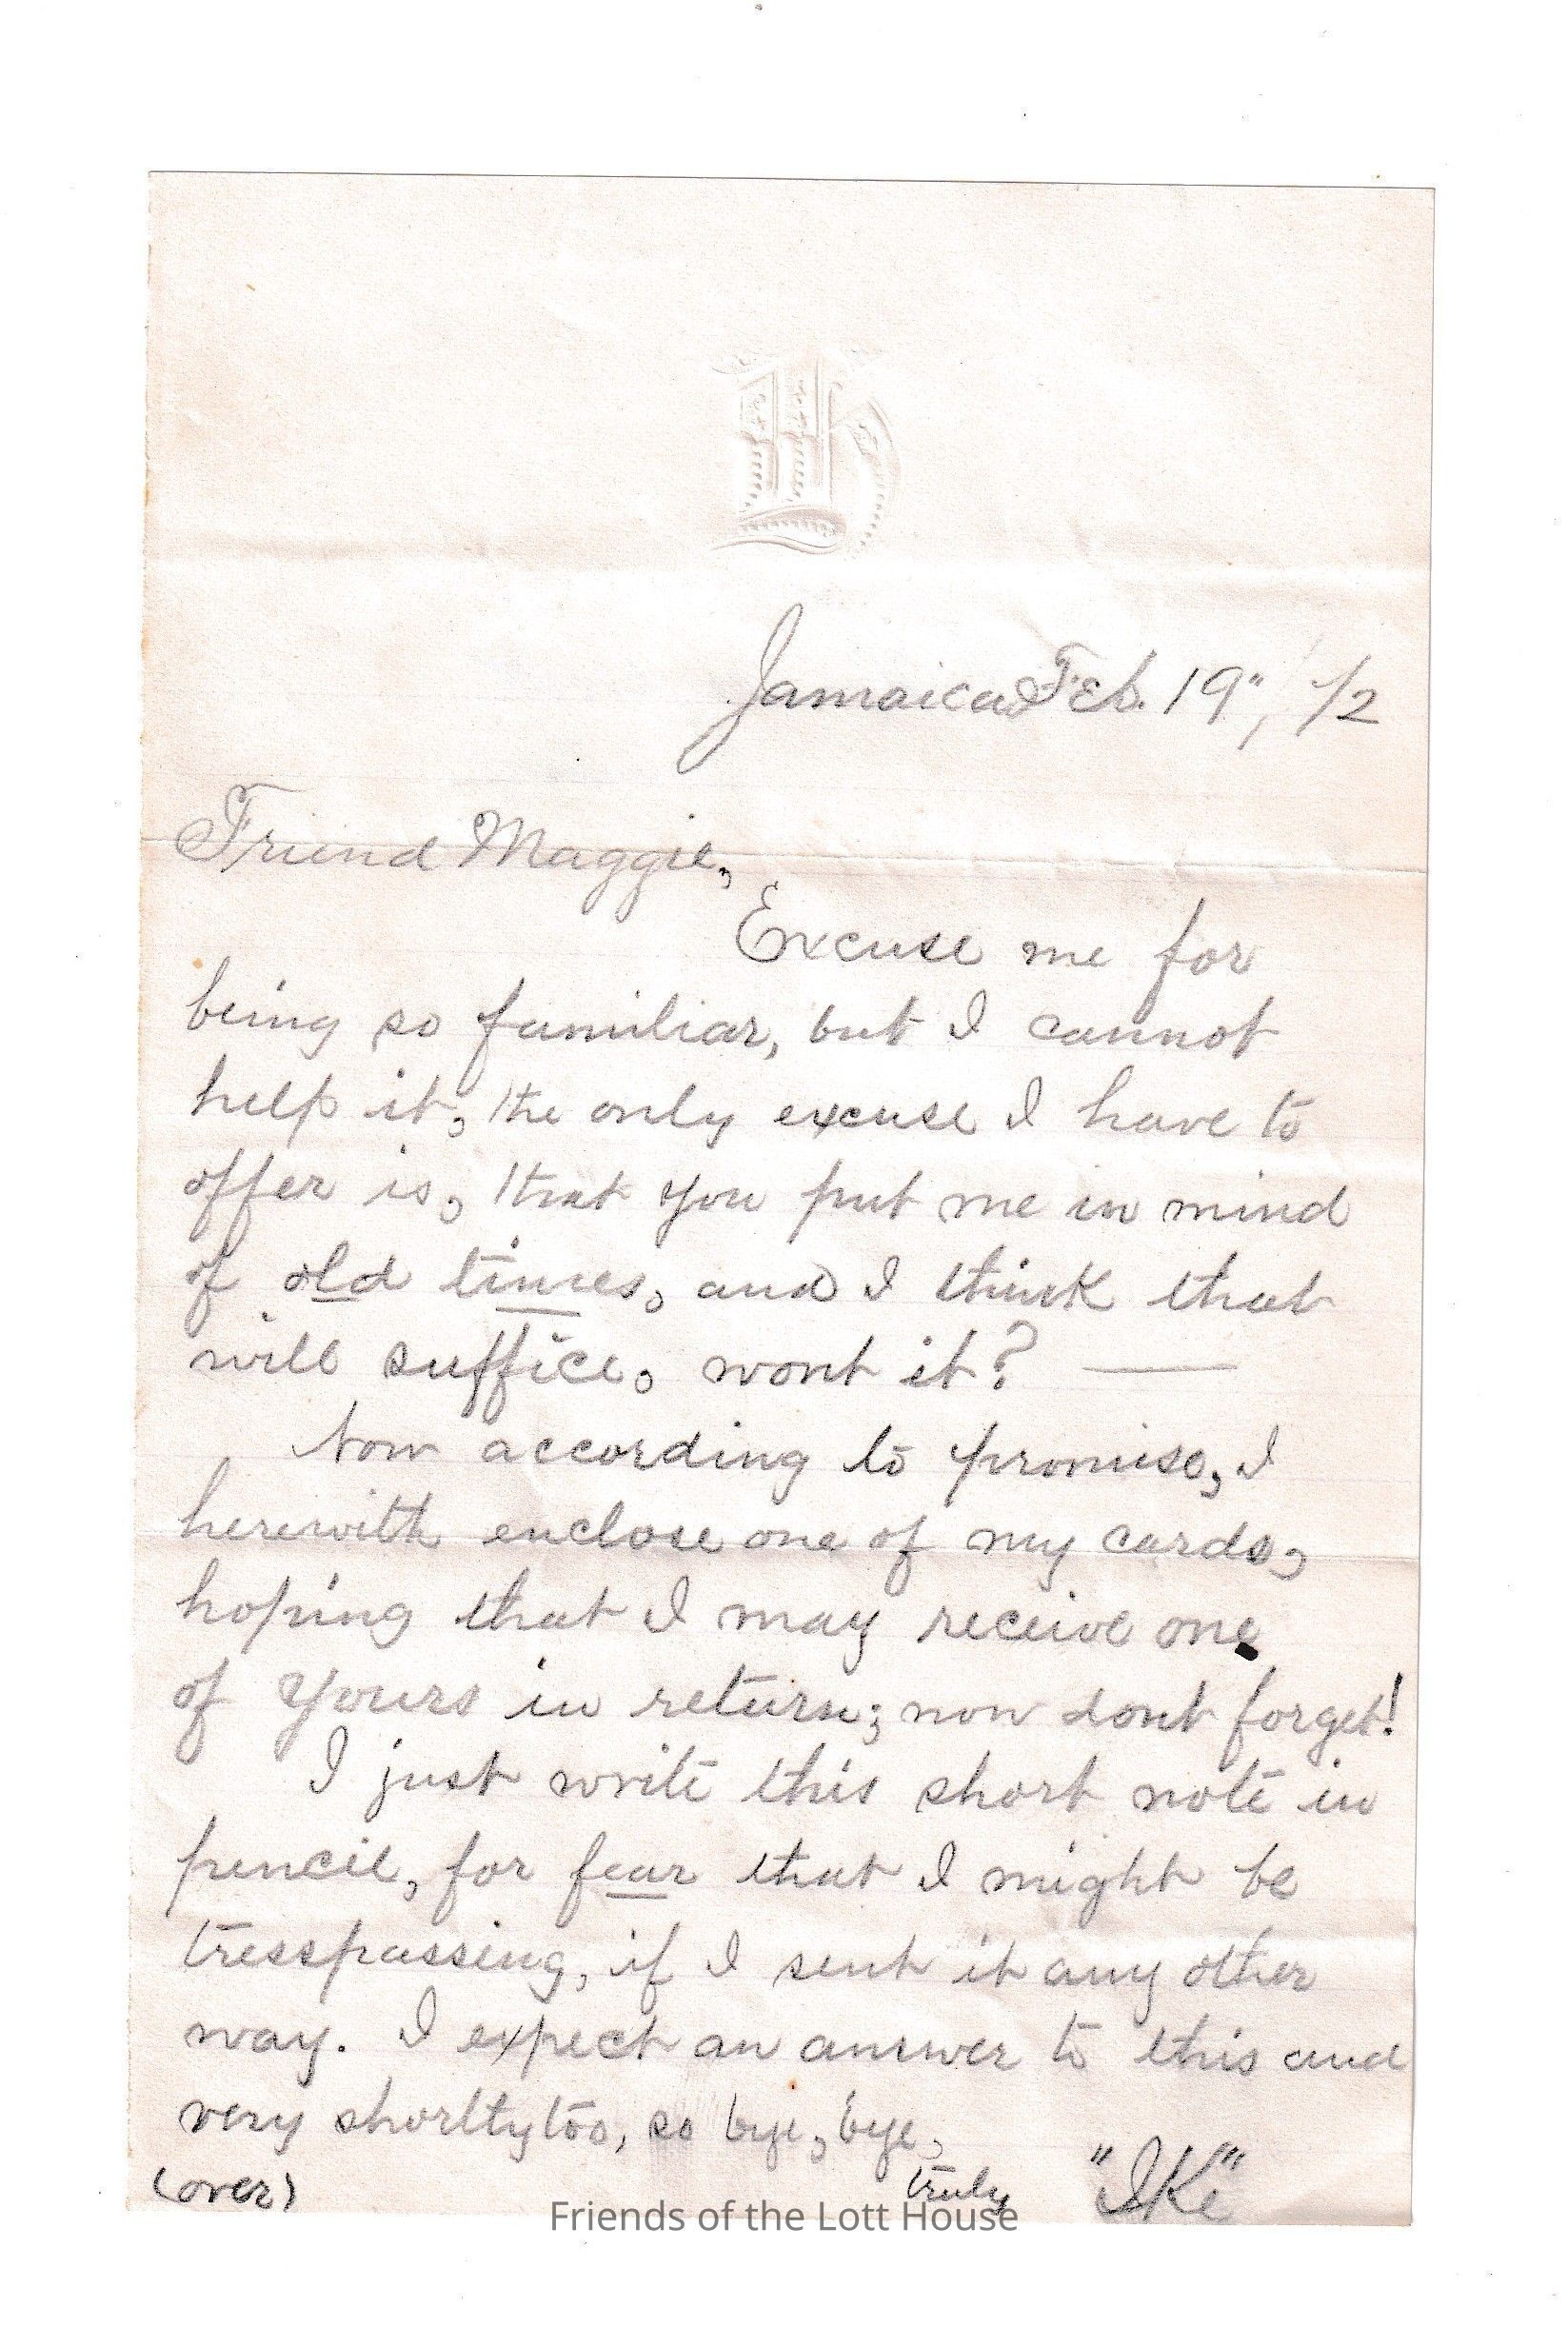 Jamaica Feb. 19", /72
Friend Maggie,
Excuse me for
being so familiar, but I cannot
help it, the only excuse I have to
offer is, that you put me in mind
of old times, and I think that
will suffice, wont it? —
Now according to promise, I
herewith enclose one of my cards,
hoping that I may receive one
of yours in return; now dont forget!
I just write this short note in
pencil, for fear that I might be
tresspassing, if I sent it any other
way. I expect an answer to this and
very shorlty too, so bye, bye,
(over) truly "IKe"
Friends of the Lott House